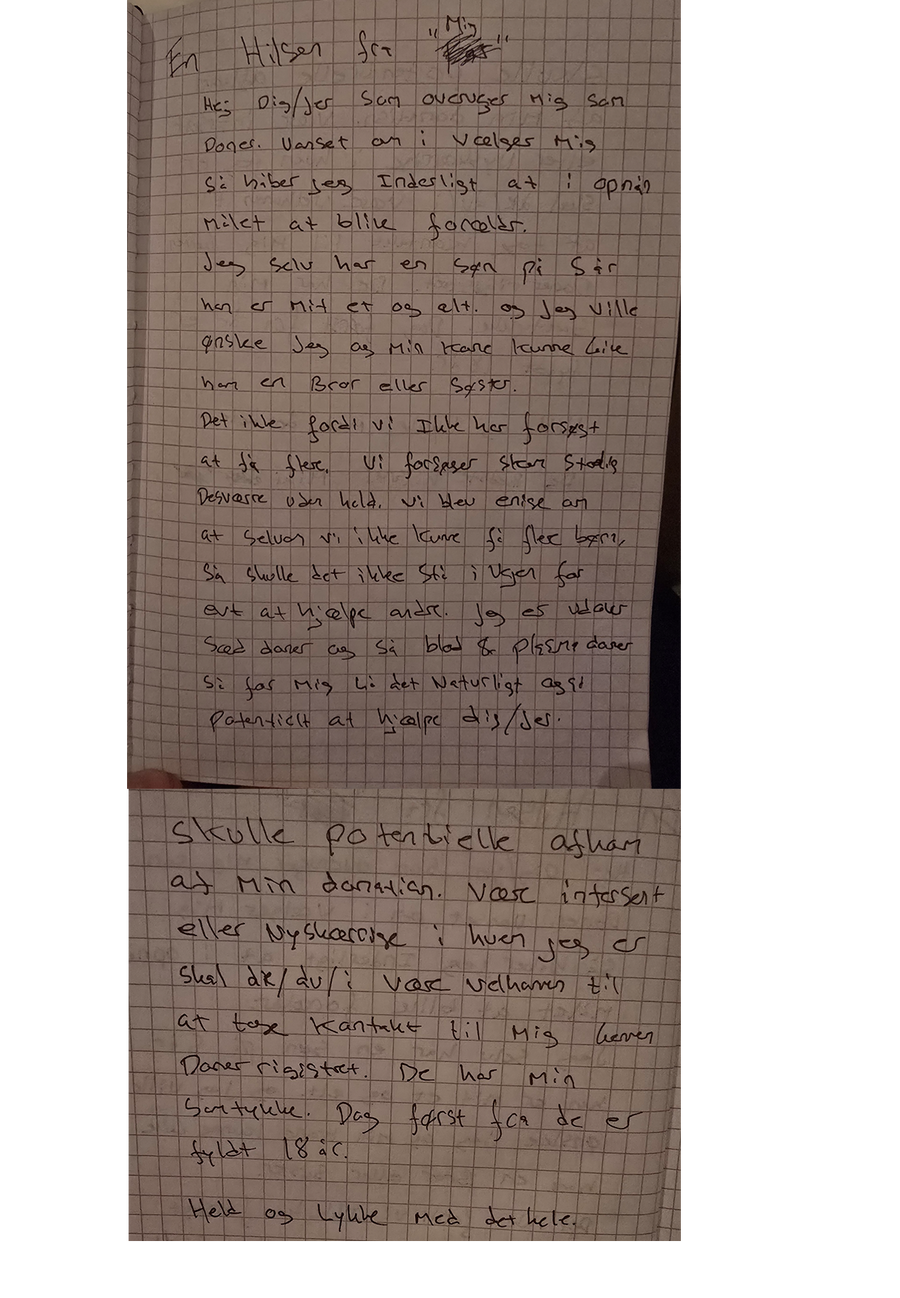 En Hilsen fra "Mig"
Hej Dig/jer som overvejer mig som
Doner. Uanset om i vælger Mig
så håber jeg Inderligt at i opnår
målet at blive forældr.
Jeg selv har en søn på 5 år
han er mit et og alt. og jeg ville
ønske jeg og min kone kunne give
ham en Bror eller Søster.
Det ikke fordi vi Ikke har forsøgt
at få flere. Vi forsøger skam stadig
Desværre uden held. vi blev enige om
at selvom vi ikke kunne få flere børn,
Så skulle det ikke stå i vejen for
evt at hjælpe andre. jeg er udover
Sæd doner og så blod & plasma doner
så for mig the det Naturligt også
potentielt at hjælpe dig/jer.
Skulle potentielle afkom
af min donation. være interssert
eller Nyskærrige i hvem jeg er
skal de/du/i være velkommen til
at tage kontakt til mig gennem
Doner rigistret. De har min
Samtykke. Dog først fra de er
fyldt 18 år.
Held og Lykke med det hele.